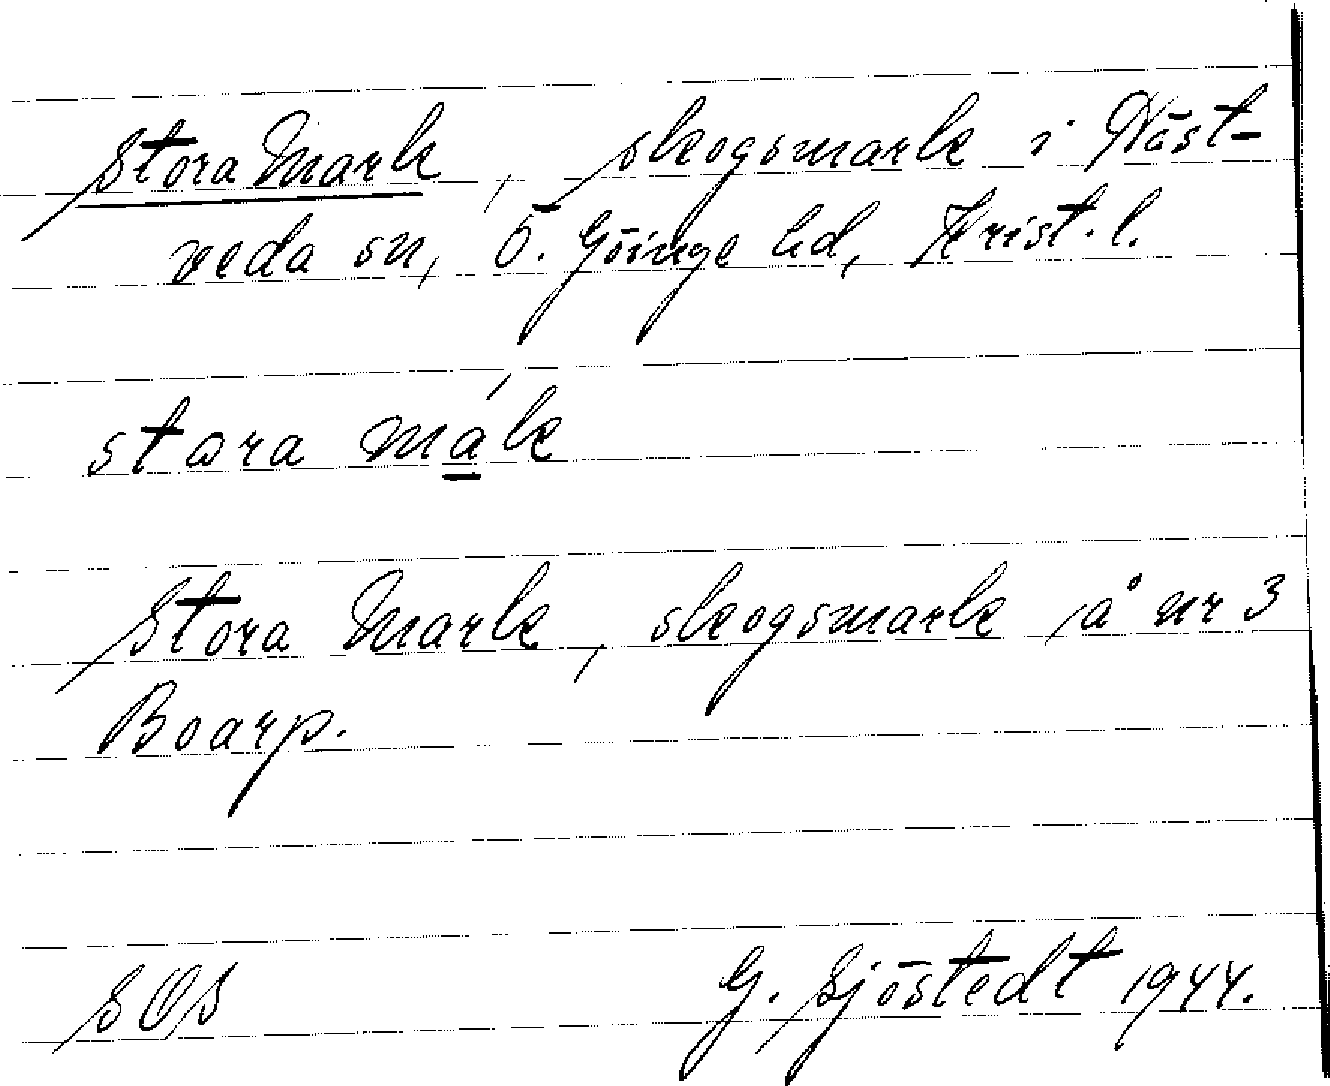 Stora Mark, skogsmark i Näst-
veda sn, Ö. Göinge hd, Krist. l.
stora mák
Stora Mark, skogsmark å nr 3
Boarp.
SOS G. Sjöstedt 1944.